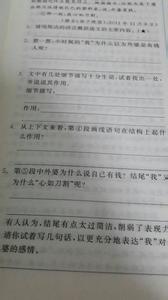 2. 第一段，小时候的“我”为什么以为外婆是有钱人呢？
3. 文中有几处细节描写十分生动，试着找出一处，并说说其作用。
细节描写：
作用：
4. 从上下文来看，第④段画线语句在结构上起什么作用？
5. 第⑤段中外婆为什么说自己有钱？结尾“我”又为什么“心如刀割”呢？
有人认为，结尾有点太过简洁，削弱了表现力
请你试着写几句话，以更充分地表达“我”对
婆的感情。